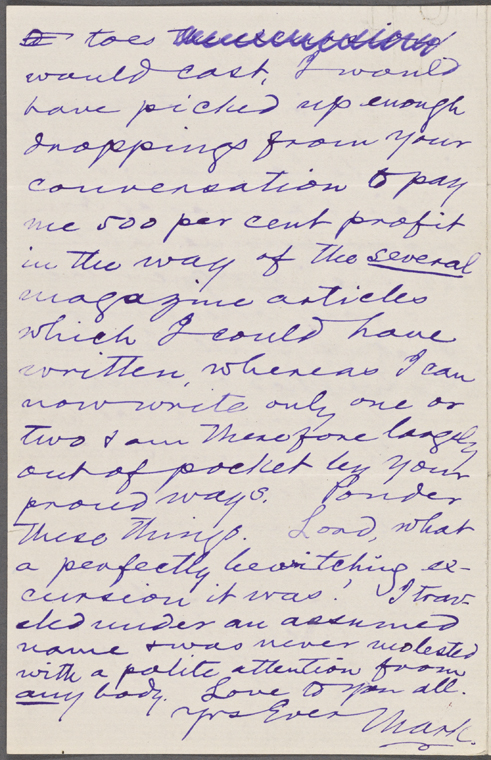 toes
would cost, I would
have picked up enough
droppings from your
conversation to pay
me 500 per cent profit
in the way of the several
magazine articles
which I could have
written, whereas I can
now write only one or
two & am therefore largely
out of pocket by your
proud ways. Ponder
these things. Lord, what
a perfectly bewitching ex-
cursion it was! I trav-
eled under an assumed
name & was never molested
with a polite attention from
anybody. Love to you all.
Yrs Ever
Mark.